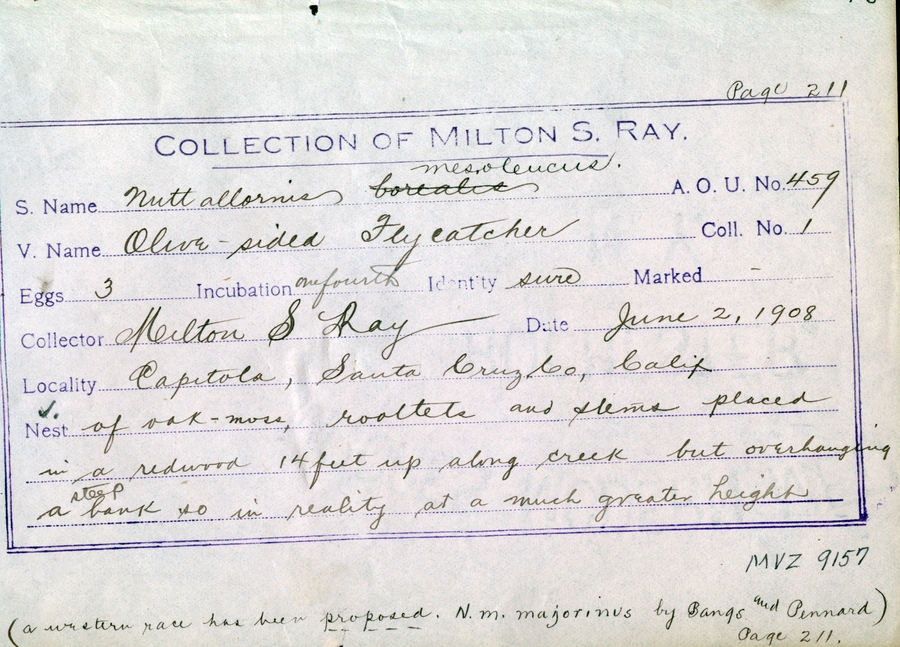 Page 211
COLLECTION OF MILTON S. RAY.
mesoleucus.
S. Name Nuttallornis borealis A. O. U. No. 459
V. Name Olive-sided Flycatcher Coll. No. 1
Eggs 3 Incubation onefourth Identity sure Marked -
Collector Milton S Ray Date June 2, 1908
Locality Capitola, Santa Cruz Co, Calif
Nest of oak-moss, rootlets and stems placed
in a redwood 14 feet up along creek but overhanging
steep
a bank so in reality at a much greater height
MVZ 9157
(a western race has been proposed. N. m. majorinus by Bangs and Pennard)
Page 211.